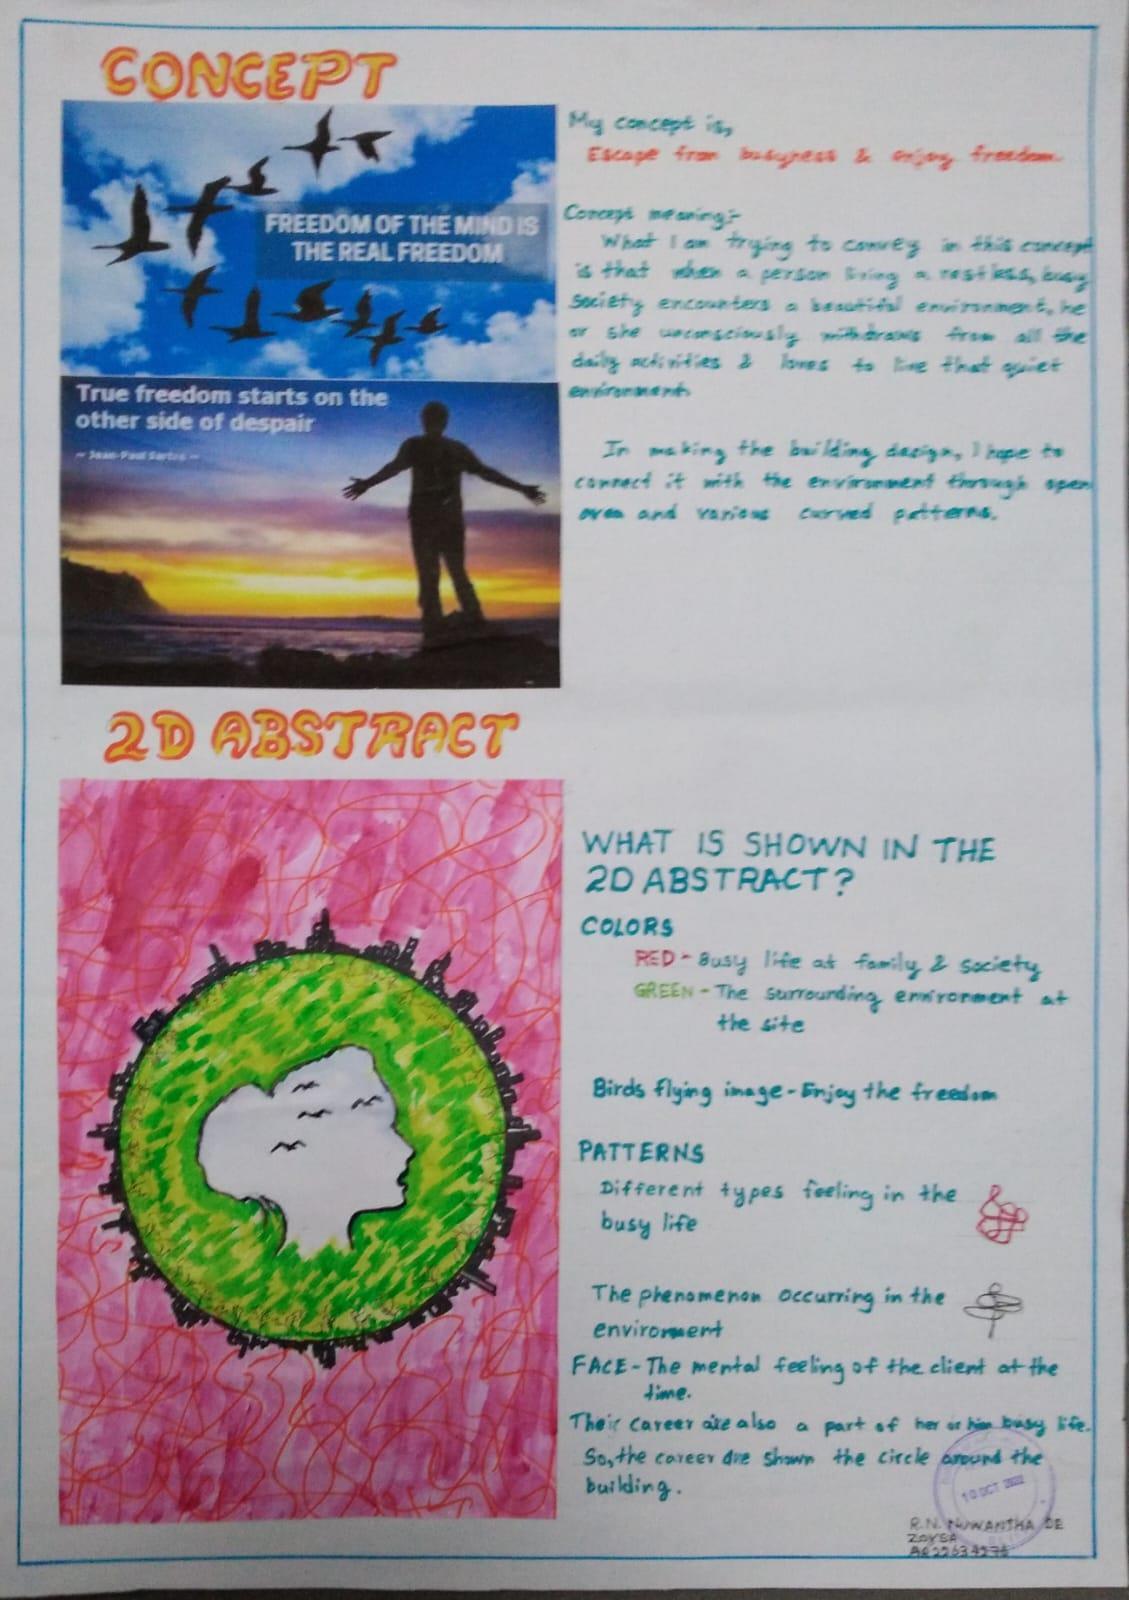 CONCEPT
FREEDOM OF THE MIND IS
THE REAL FREEDOM
True freedom starts on the
other side of despair
~ Jean-Paul Sartre ~
My concept is,
Escape from busyness & enjoy freedom.
Concept meaning:-
What I am trying to convey in this concept
is that when a person living a restless, busy
society encounters a beautiful environment, he
or she unconsciously withdraws from all the
daily activities & loves to live that quiet
environment.
In making the building design, I hope to
connect it with the environment through open
area and various curved patterns.
2D ABSTRACT
WHAT IS SHOWN IN THE
2D ABSTRACT?
COLORS
RED - Busy life at family & society
GREEN - The surrounding environment at
the site
Birds flying image - Enjoy the freedom
PATTERNS
Different types feeling in the
busy life
The phenomenon occurring in the
environment
FACE - The mental feeling of the client at the
time.
Their career are also a part of her or him busy life.
So, the career are shown the circle around the
building.
10 OCT 2022
R.N. NUWANTHA DE
ZOYSA